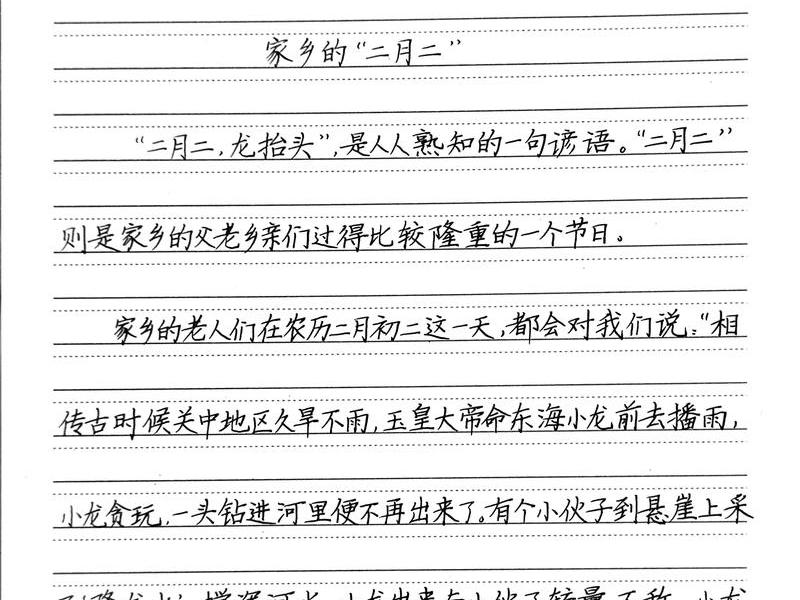 家乡的“二月二”
“二月二,龙抬头”,是人人熟知的一句谚语。“二月二”
则是家乡的父老乡亲们过得比较隆重的一个节日。
家乡的老人们在农历二月初二这一天,都会对我们说:“相
传古时候关中地区久旱不雨,玉皇大帝命东海小龙前去播雨,
小龙贪玩,一头钻进河里便不再出来了。有个小伙子到悬崖上采